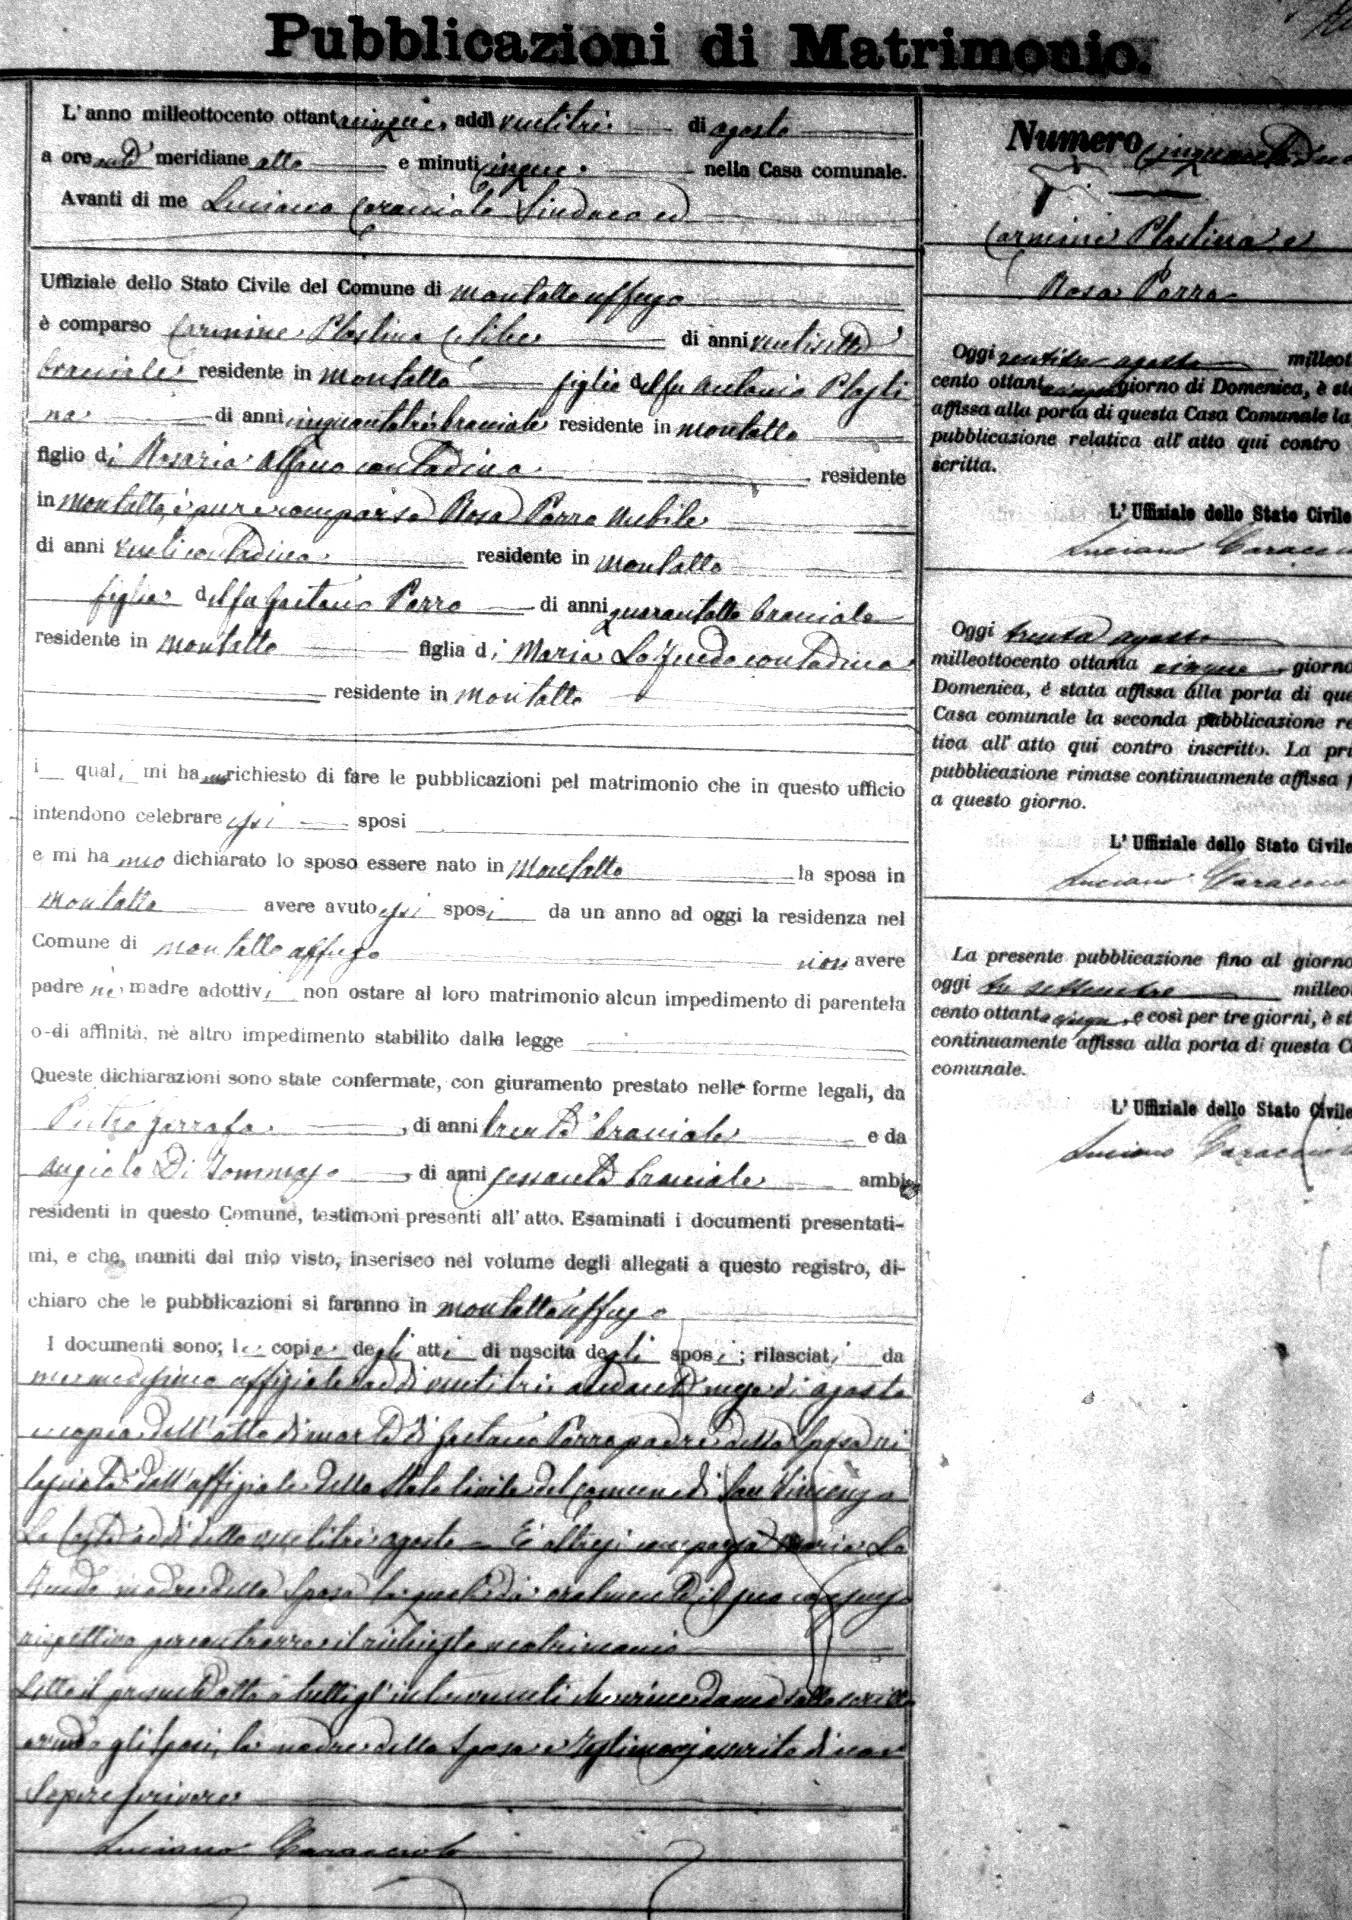 Pubblicazioni di Matrimonio.
L'anno milleottocento ottantacinque, addì ventitre di agosto
a ore antid meridiane otto e minuti cinque nella Casa comunale.
Avanti di me Luciano Caracciolo Sindaco ed
Uffiziale dello Stato Civile del Comune di Montalto Uffugo
è comparso Carmine Plastina celibe di anni ventisette
bracciale residente in Montalto figlio del fu Antonio Plasti
na di anni cinquantatre bracciale residente in Montalto
figlio di Rosaria Alfano contadina residente
in Montalto, è pure comparsa Rosa Porro nubile
di anni venti contadina residente in Montalto
figlia del fu Gaetano Porro di anni quarantotto bracciale
residente in Montalto figlia di Maria Lo Feudo contadina
residente in Montalto
i quali mi hanno richiesto di fare le pubblicazioni pel matrimonio che in questo ufficio
intendono celebrare essi sposi
e mi hanno dichiarato lo sposo essere nato in Montalto la sposa in
Montalto avere avuto essi sposi da un anno ad oggi la residenza nel
Comune di Montalto Uffugo non avere
padre nè madre adottivi non ostare al loro matrimonio alcun impedimento di parentela
o di affinità, nè altro impedimento stabilito dalla legge
Queste dichiarazioni sono state confermate, con giuramento prestato nelle forme legali, da
Pietro Garrafa, di anni trenta bracciale e da
Angiolo Di Tommaso, di anni sessanta bracciale ambi
residenti in questo Comune, testimoni presenti all'atto. Esaminati i documenti presentati-
mi, e che, muniti dal mio visto, inserisco nel volume degli allegati a questo registro, di-
chiaro che le pubblicazioni si faranno in Montalto Uffugo
I documenti sono; le copie degli atti di nascita degli sposi; rilasciati da
me medesimo uffiziale addì ventitre andante mese di agosto
e copia dell'atto di morte di Gaetano Porro padre della sposa ri
lasciata dall'uffiziale dello Stato Civile del Comune di San Vincenzo
La Costa addì detto ventitre agosto - È altresì comparsa Maria Lo
Feudo madre della Sposa la quale dà oralmente il suo consenso
rispettivo per contrarre il richiesto matrimonio
Letto il presente atto a tutti gl'intervenuti
avendo gli sposi, la madre della Sposa e testimoni asserito di non
Sapere scrivere
Luciano Caracciolo
Numero Cinquantadue
Carmine Plastina e
Rosa Porro
Oggi ventitre agosto milleot
cento ottantacinque giorno di Domenica, è sta
affissa alla porta di questa Casa Comunale la
pubblicazione relatica all'atto qui contro
scritta.
L'Uffiziale dello Stato Civile
Luciano Caracci
Oggi trenta agosto
milleottocento ottanta cinque giorno
Domenica, é stata affissa alla porta di que
Casa comunale la seconda pubblicazione re
tiva all'atto qui contro inscritto. La pri
pubblicazione rimase continuamente affissa f
a questo giorno.
L'Uffiziale dello Stato Civile
Luciano Caracci
La presente pubblicazione fino al giorno
oggi tre settembre milleot
cento ottantacinque, e così per tre giorni, è st
continuamente affissa alla porta di questa C
comunale.
L'Uffiziale dello Stato Civile
Luciano Caracciol